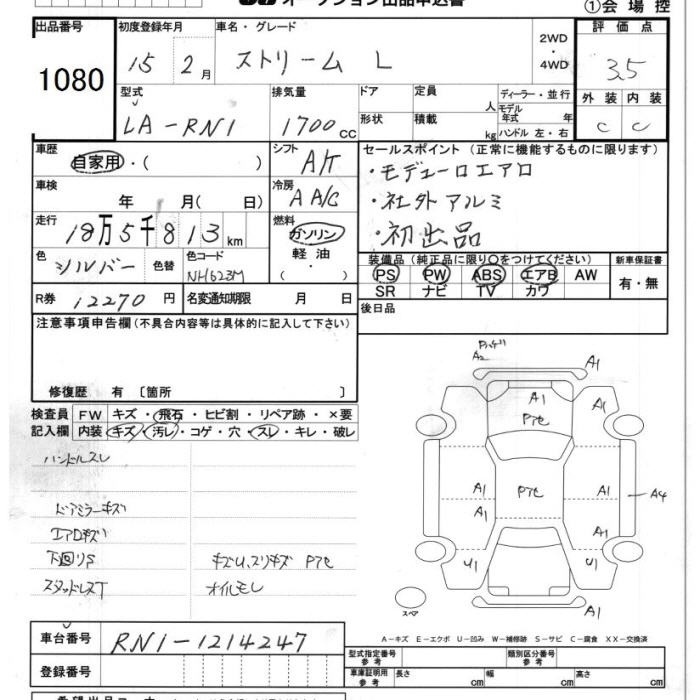 オークション出品申込書
①会場控
出品番号
1080
初度登録年月
15 2月
車名・グレード
ストリーム L
2WD
・
4WD
評価点
3.5
型式
LA-RN1
排気量
1700 cc
ドア
形状
定員 人
積載 kg
ディーラー・並行
モデル年式 年
ハンドル 左・右
外装 内装
C C
車歴
自家用・( )
シフト
A/T
セールスポイント (正常に機能するものに限ります)
・モデューロエアロ
・社外アルミ
・初出品
車検
年 月( 日)
冷房
A A/C
走行
18万5千813 km
燃料
ガソリン
軽油
・
( )
色
シルバー
色替
色コード
NH623M
装備品 (純正品に限り○をつけてください)
PS PW ABS エアB AW
SR ナビ TV カワ
新車保証書
有・無
R券
12270 円
名変通知期限 月 日
後日品
注意事項申告欄 (不具合内容等は具体的に記入して下さい)
修復歴 有 〔箇所 〕
検査員
記入欄
FW キズ・飛石・ヒビ割・リペア跡・×要
内装 キズ・汚レ・コゲ・穴・スレ・キレ・破レ
ハンドルスレ
ドアミラーキズ
エアロキズ
下廻りS
キズU、スリキズ Pアセ
スタッドレスT
オイルモレ
A2
A1
A1
Pアセ
A1
A1
Pアセ
A1
A1
A4
A1
A1
U1
U1
A1
スペア
A-キズ E-エクボ U-凹み W-補修跡 S-サビ C-腐食 XX-交換済
車台番号
RN1-1214247
登録番号
型式指定番号
参考
類別区分番号
参考
車庫証明用
参考
長さ cm
幅 cm
高さ cm